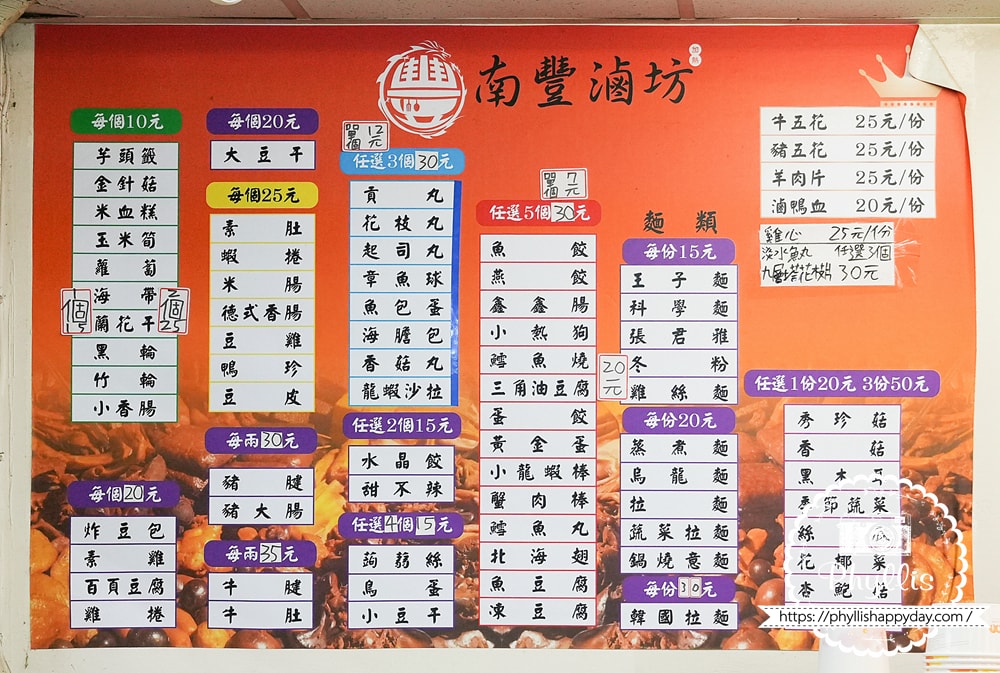 南豐滷坊
加熱
每個10元
芋頭籤
金針菇
米血糕
玉米筍
蘿蔔
海帶
蘭花干
1個15
2個25
黑輪
竹輪
小香腸
每個20元
炸豆包
素雞
百頁豆腐
雞捲
每個20元
大豆干
每個25元
素肚
蝦捲
米腸
德式香腸
豆雞
鴨珍
豆皮
每兩30元
豬腱
豬大腸
每兩35元
牛腱
牛肚
單個12元
任選3個30元
貢丸
花枝丸
起司丸
章魚球
魚包蛋
海膽包
香菇丸
龍蝦沙拉
任選2個15元
水晶餃
甜不辣
任選4個15元
蒟蒻絲
鳥蛋
小豆干
單個7元
任選5個30元
魚餃
燕餃
鑫鑫腸
小熱狗
鱈魚燒
三角油豆腐
蛋餃
黃金蛋
小龍蝦棒
蟹肉棒
鱈魚丸
北海翅
魚豆腐
凍豆腐
麵類
每份15元
王子麵
科學麵
張君雅
冬粉
雞絲麵
20元
每份20元
蒸煮麵
烏龍麵
拉麵
蔬菜拉麵
鍋燒意麵
每份30元
韓國拉麵
牛五花 25元/份
豬五花 25元/份
羊肉片 25元/份
滷鴨血 20元/份
雞心 25元/份
淡水魚丸 任選3個
九層塔花枝丸 30元
任選1份20元 3份50元
秀珍菇
香菇
黑木耳
季節蔬菜
絲瓜
花椰菜
杏鮑菇
Phyllis
https://phyllishappyday.com/